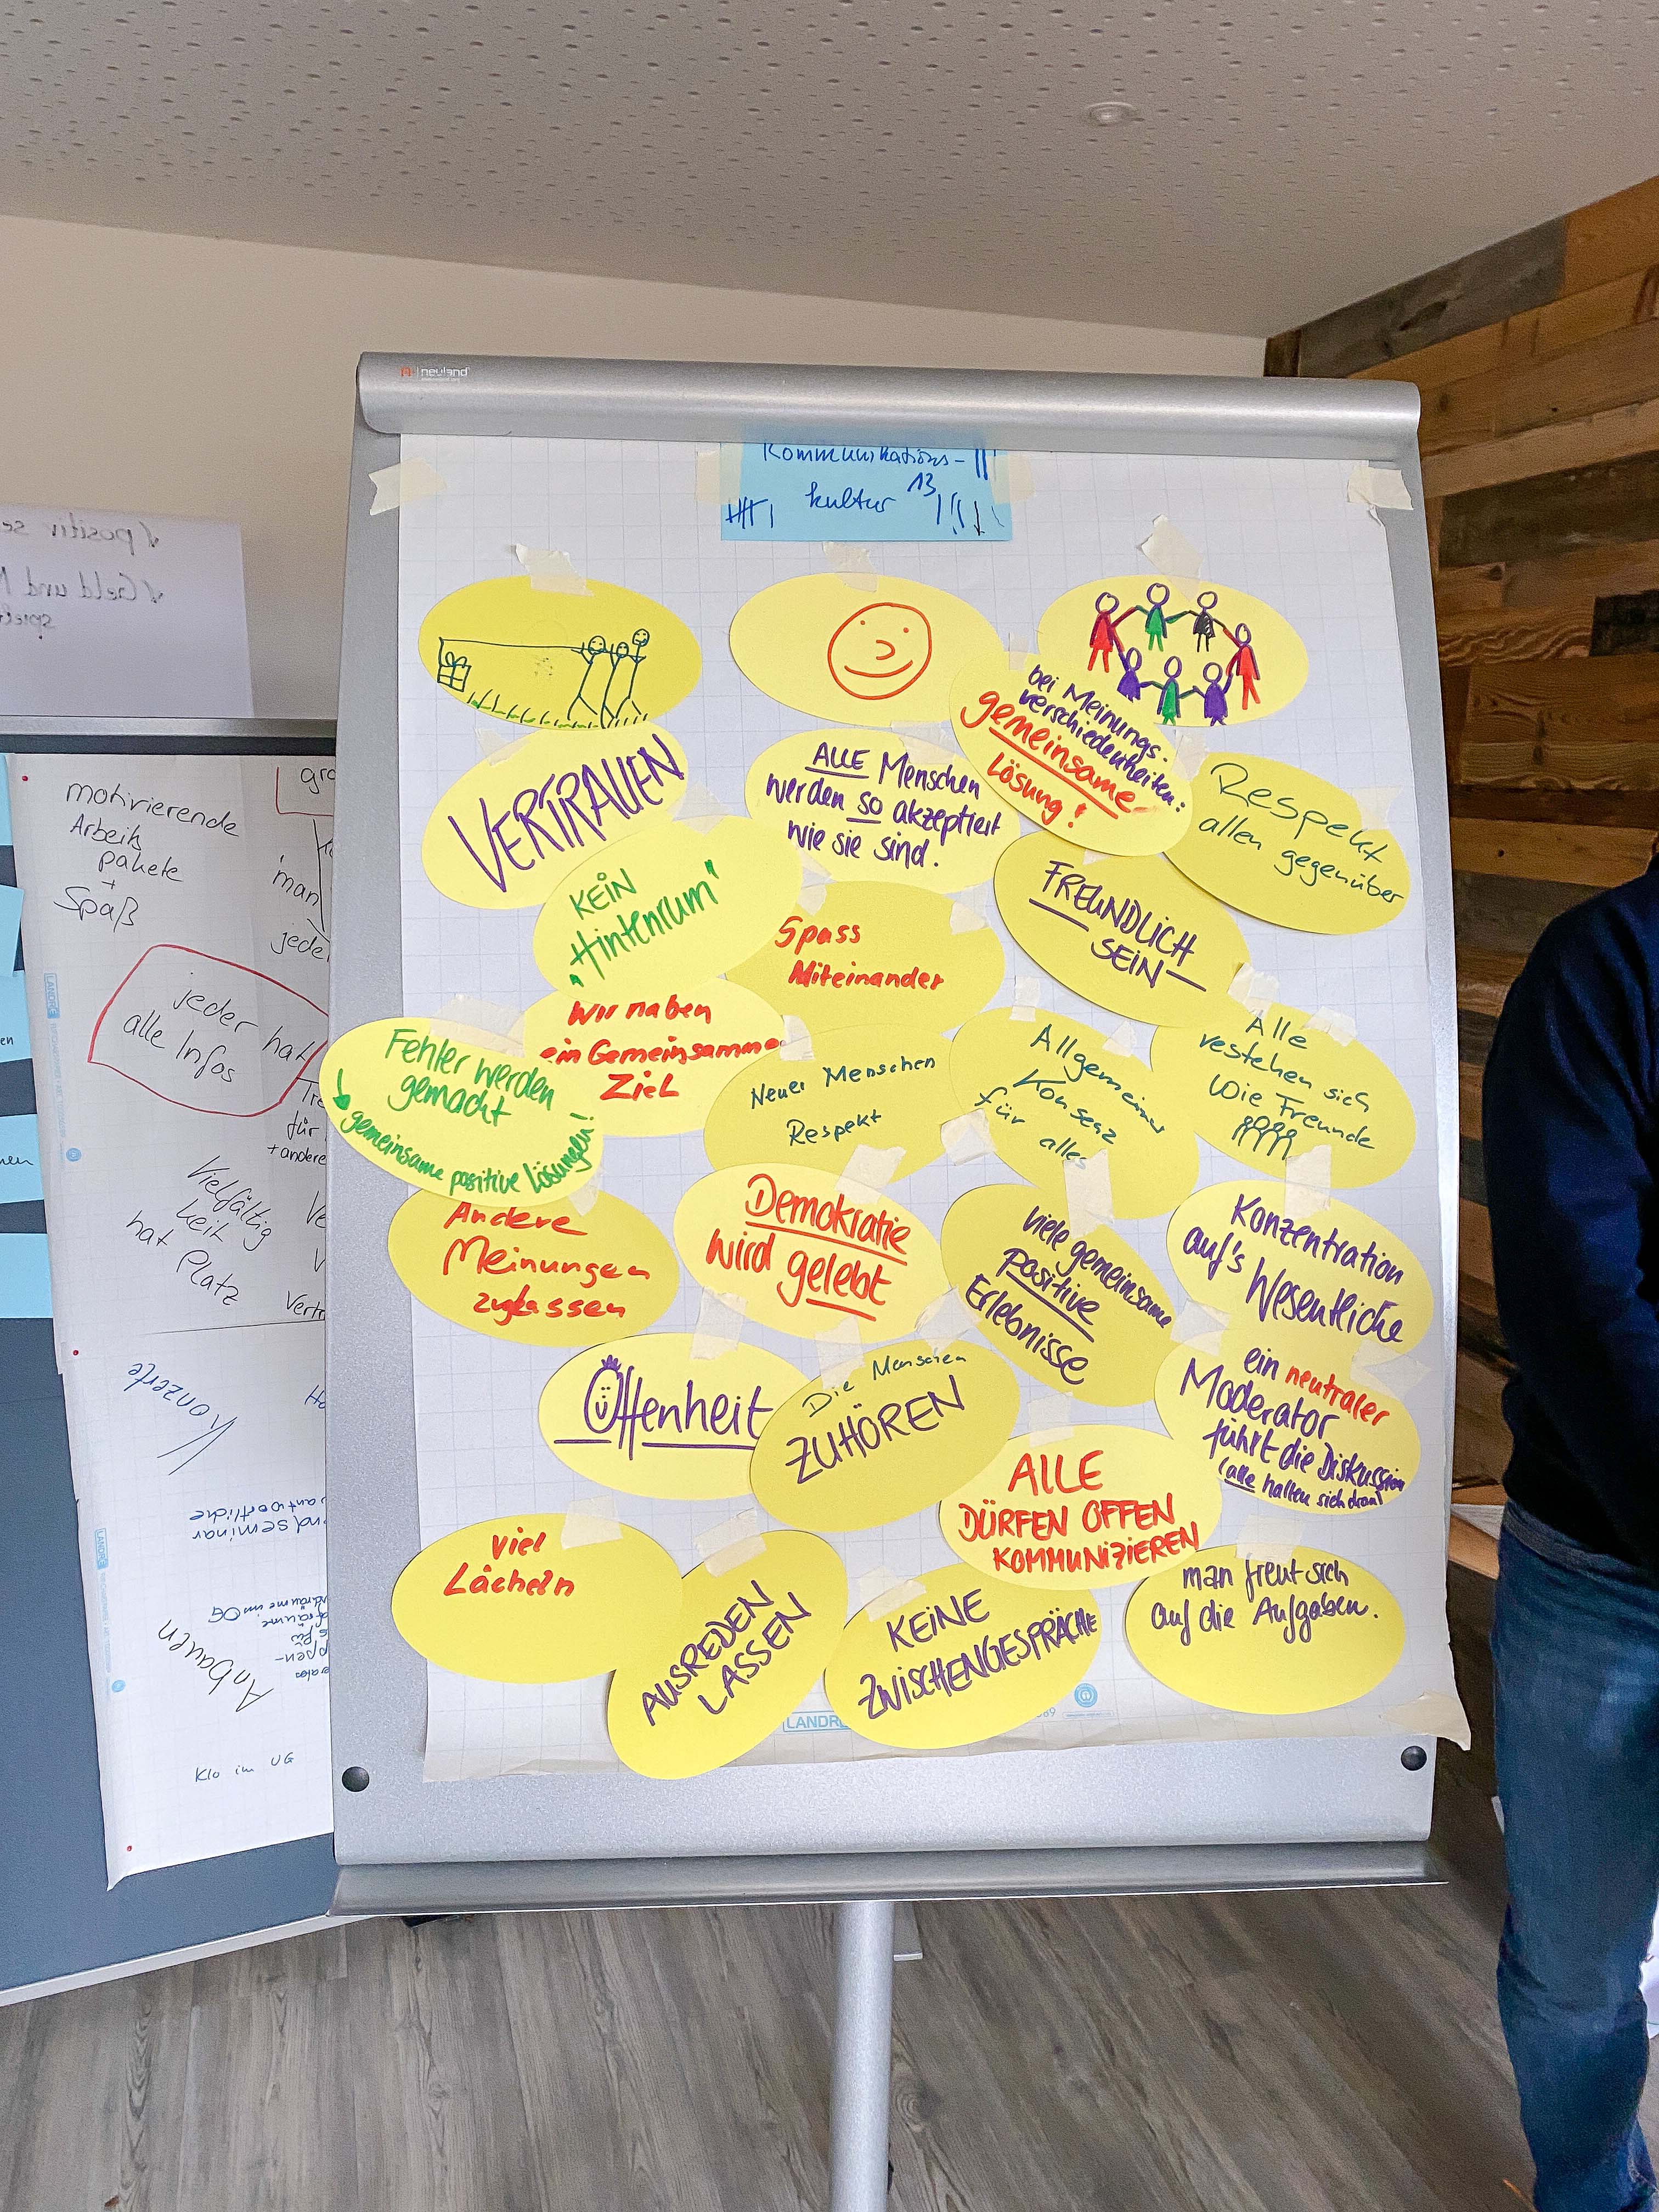 neuland
Kommunikations-
kultur 13
VERTRAUEN
ALLE Menschen
werden so akzeptiert
wie sie sind.
bei Meinungs-
verschiedenheiten:
gemeinsame
Lösung!
Respekt
allen gegenüber
KEIN
"Hintenrum"
Spass
Miteinander
FREUNDLICH
SEIN
Wir haben
ein Gemeinsammes
Ziel
Fehler werden
gemacht
gemeinsame positive Lösungen!
Neuer Menschen
Respekt
Allgemeiner
Konsenz
für alles
Alle
vestehen sich
wie Freunde
Andere
Meinungen
zulassen
Demokratie
wird gelebt
viele gemeinsame
positive
Erlebnisse
Konzentration
auf's Wesentliche
Offenheit
Die Menschen
ZUHÖREN
ein neutraler
Moderator
führt die Diskussion
(alle halten sich dran)
ALLE
DÜRFEN OFFEN
KOMMUNIZIEREN
viel
Lächeln
AUSREDEN
LASSEN
KEINE
ZWISCHENGESPRÄCHE
man freut sich
auf die Aufgaben.
LANDRÉ
positiv se
Geld und
spiel
motivierende
Arbeits
pakete
+
Spaß
gro
man
jede
jeder hat
alle Infos
für
+ andere
Vielfältig
keit
hat Platz
Ve
V
Vertr
Konzerte
antwortliche
ndseminar
Anbauen
Klo im UG
LANDRÉ
LANDRÉ